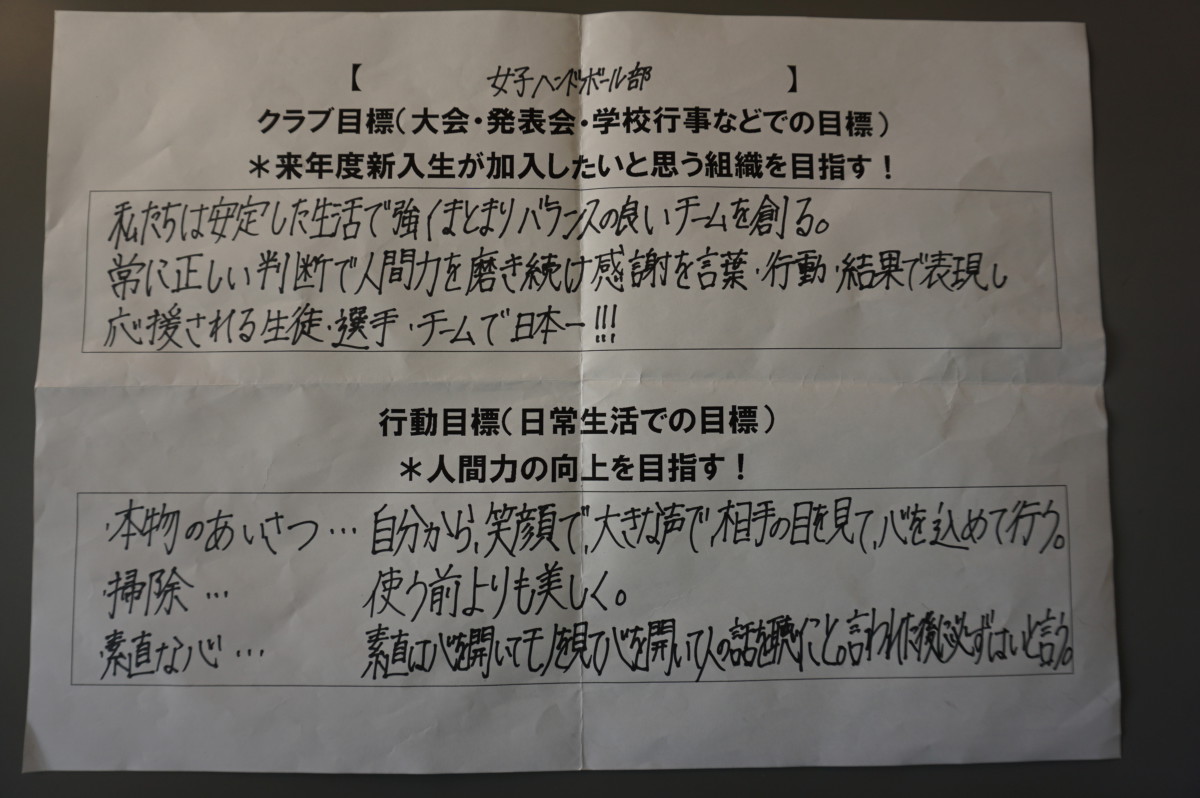 【 女子ハンドボール部 】
クラブ目標(大会・発表会・学校行事などでの目標)
＊来年度新入生が加入したいと思う組織を目指す！
私たちは安定した生活で強くまとまりバランスの良いチームを創る。
常に正しい判断で人間力を磨き続け感謝を言葉・行動・結果で表現し
応援される生徒・選手・チームで日本一!!!
行動目標(日常生活での目標)
＊人間力の向上を目指す！
・本物のあいさつ… 自分から,笑顔で,大きな声で,相手の目を見て,心を込めて行う。
・掃除… 使う前よりも美しく。
・素直な心… 素直は心を開いてモノを見て心を開いて人の話を聴くこと。言われた後に必ずはいと言う。